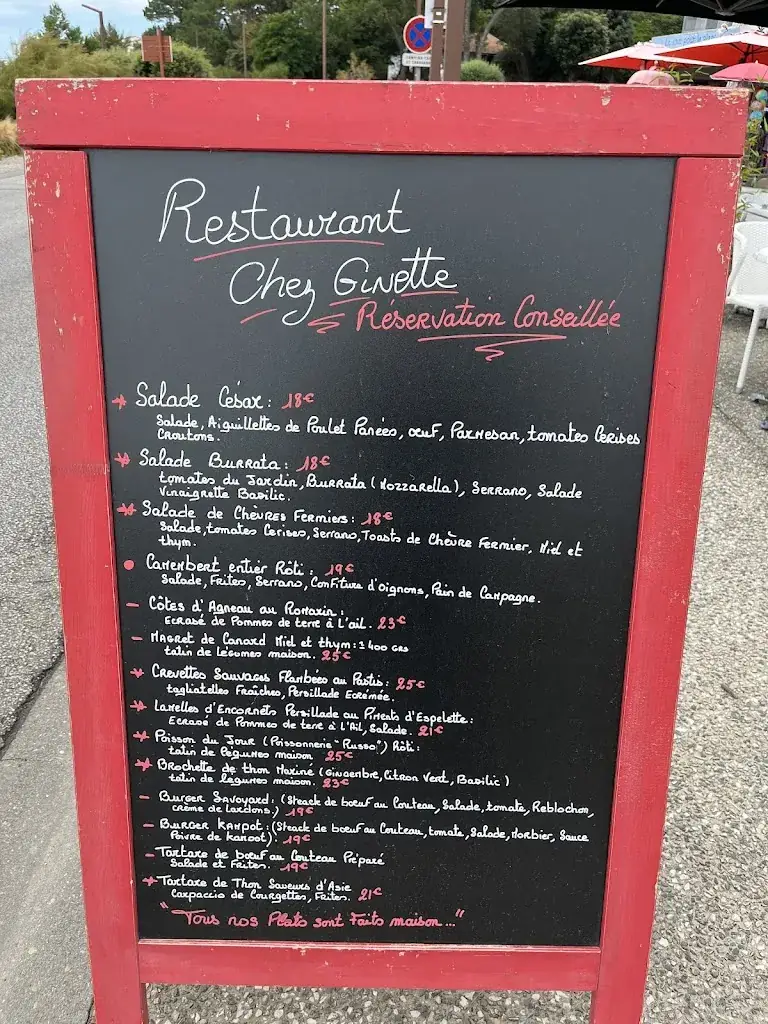 Restaurant
Chez Ginette
Réservation Conseillée
Salade César : 18€
Salade, Aiguillettes de Poulet Panées, œuf, Parmesan, tomates Cerises
Croutons.
Salade Burrata : 18€
tomates du Jardin, Burrata (Mozzarella), Serrano, Salade
Vinaigrette Basilic.
Salade de Chèvres Fermiers : 18€
Salade, tomates Cerises, Serrano, Toasts de Chèvre Fermier, Miel et
thym.
Camembert entier Rôti : 19€
Salade, Frites, Serrano, Confiture d'oignons, Pain de Campagne.
Côtes d'Agneau au Romarin :
Ecrasé de Pommes de terre à l'ail. 23€
Magret de Canard Miel et thym : ± 400 grs
tatin de légumes maison. 25€
Crevettes Sauvages Flambées au Pastis : 25€
tagliatelles Fraîches, Persillade Ecrémée.
Lamelles d'Encornets Persillade au Piments d'Espelette :
Ecrasé de Pommes de terre à l'Ail, Salade. 21€
Poisson du Jour (Poissonnerie "Russo") Rôti :
tatin de légumes maison 25€
Brochette de thon Mariné (Gingembre, Citron Vert, Basilic)
tatin de légumes maison. 23€
Burger Savoyard : (Steack de bœuf au Couteau, Salade, tomate, Reblochon,
crème de lardons.) 19€
Burger Kampot : (Steack de bœuf au Couteau, tomate, Salade, Morbier, Sauce
Poivre de kampot). 19€
Tartare de bœuf au Couteau Préparé
Salade et Frites. 19€
Tartare de Thon Saveurs d'Asie
Carpaccio de Courgettes, Frites. 21€
"Tous nos Plats sont Faits maison..."